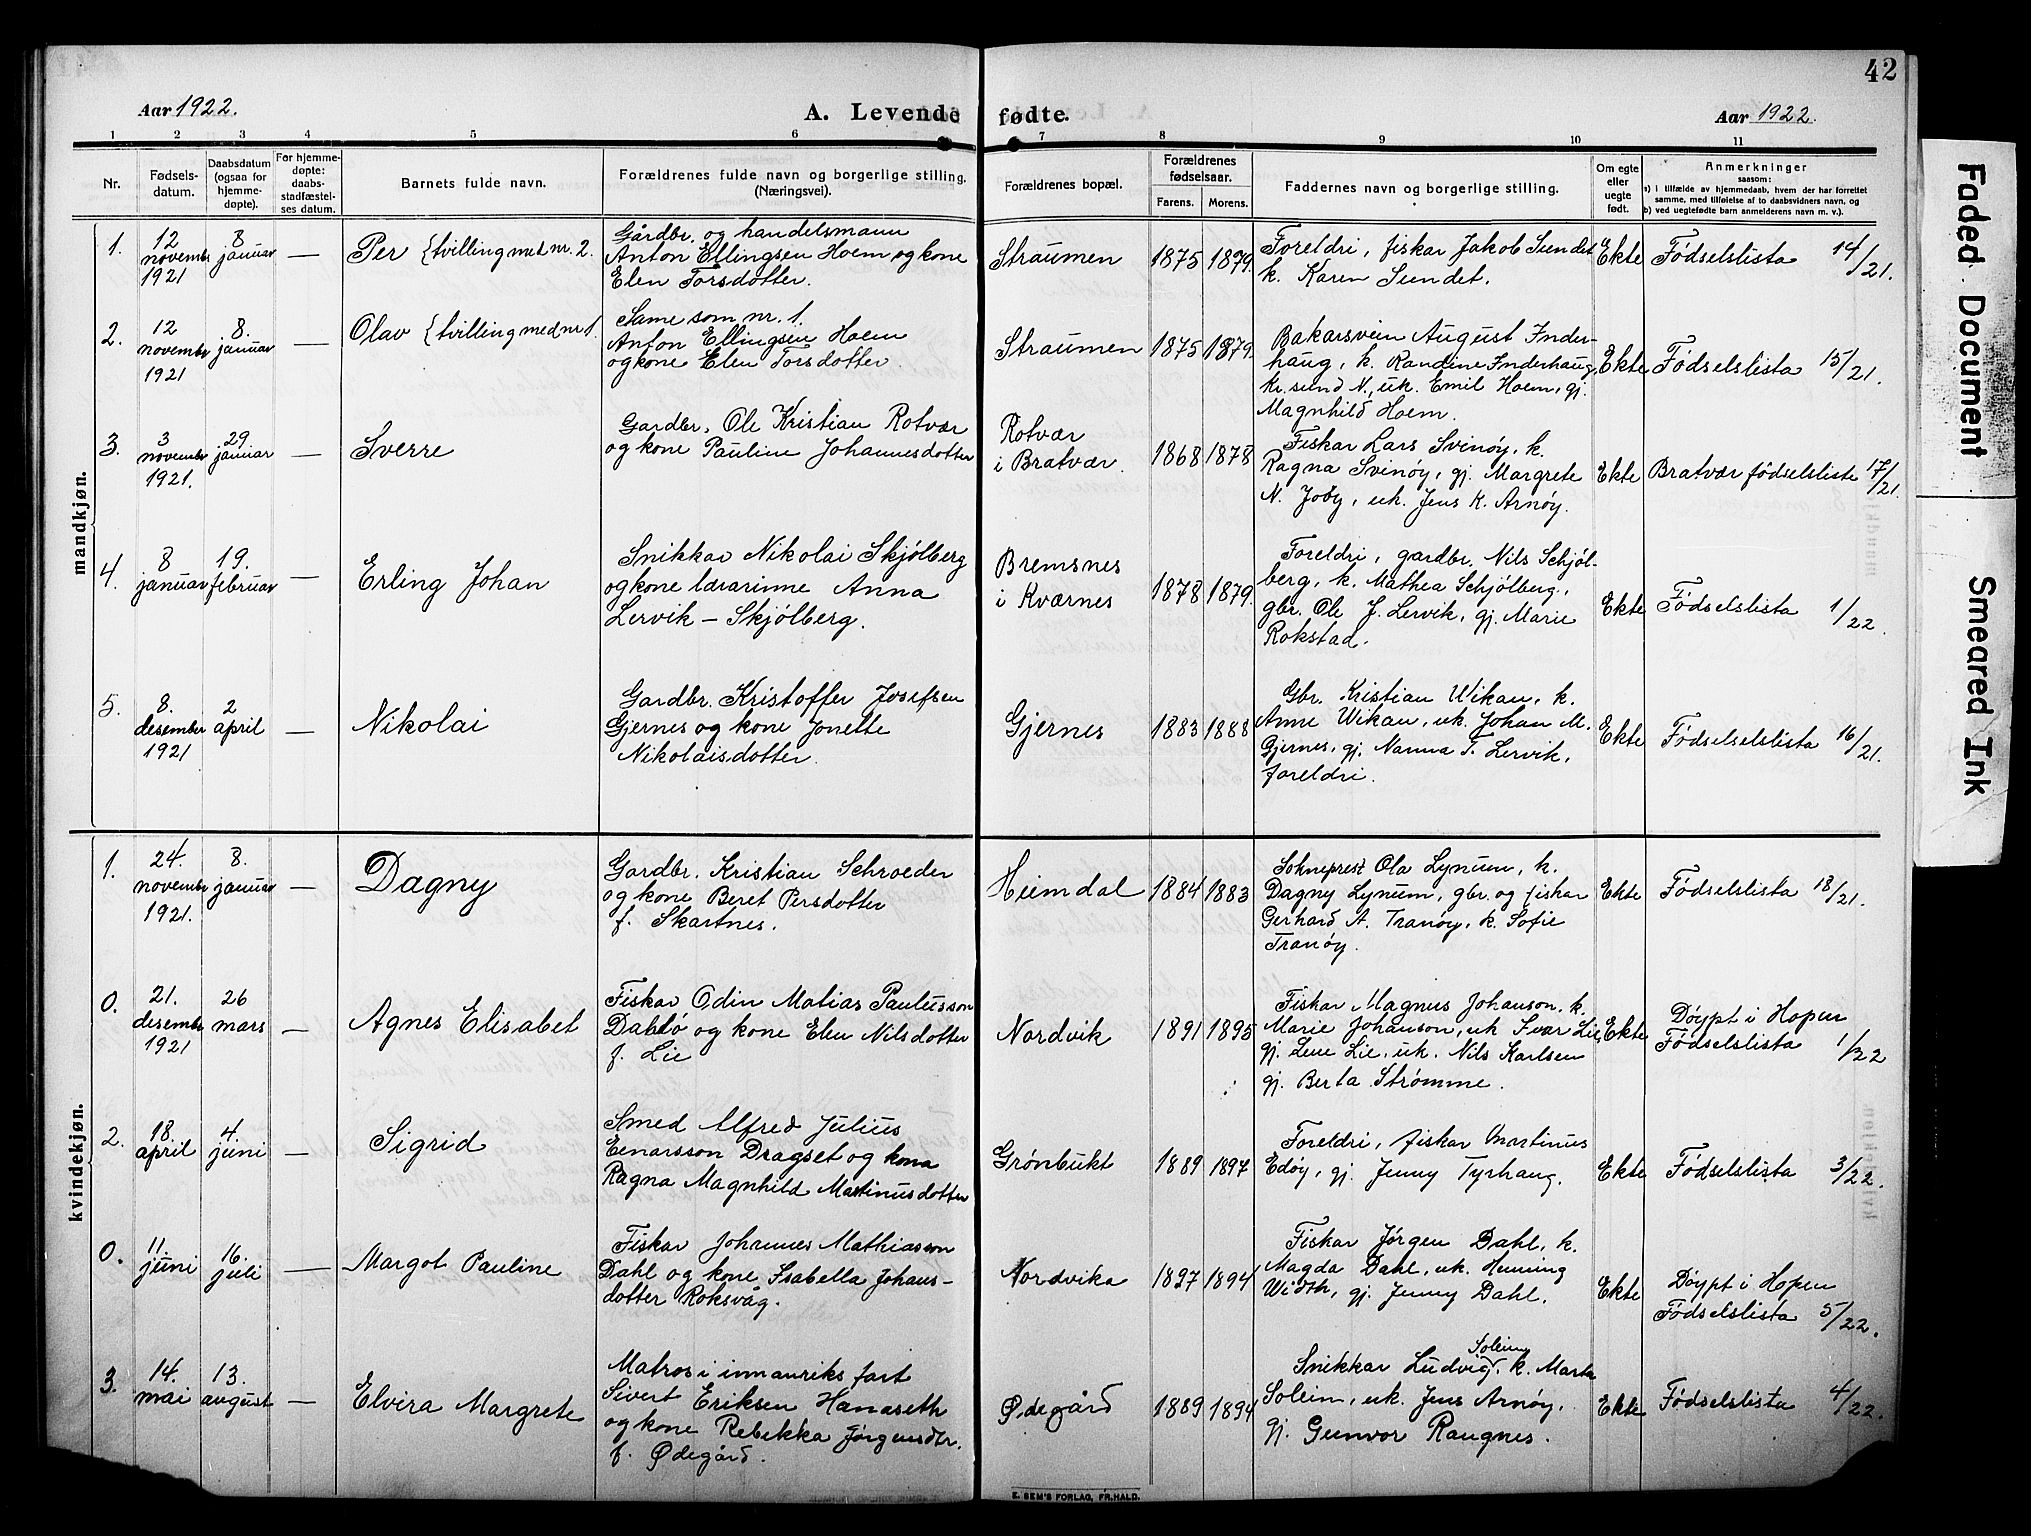 42
Aar 1922.
A. Levende fødte.
Aar 1922.
1 2 3 4 5 6 7 8 9 10 11
Nr.
Fødsels-
datum.
Daabsdatum
(ogsaa for
hjemme-
døpte).
For hjemme-
døpte:
daabs-
stadfæstel-
ses datum.
Barnets fulde navn.
Forældrenes fulde navn og borgerlige stilling.
(Næringsvei).
Forældrenes bopæl.
Forældrenes
fødselsaar.
Farens. Morens.
Faddernes navn og borgerlige stilling.
Om egte
eller
uegte
født.
Anmerkninger
saasom:
a) i tilfælde av hjemmedaab, hvem der har forrettet
samme, med tilføielse av to daabsvidners navn, og
b) ved uegtefødte barn anmelderens navn m. v.).
mandkjøn.
1.
12
novembr
1921
8
januar
—
Per {tvilling med nr. 2.
Gårdbr. og handelsmann
Anton Ellingsen Hoem og kone
Elen Torsdotter.
Straumen
1875 1879.
Foreldri, fiskar Jakob Sundet
k. Karen Sundet.
Ekte
Fødselslista 14/21.
2.
12
novembr
1921
8.
januar
—
Olav {tvilling med nr 1.
Same som nr. 1.
Anton Ellingsen Hoem
og kone Elen Torsdotter.
Straumen
1875 1879.
Bakarsvein August Inder-
haug, k. Randine Inderhaug,
Kr.sund N., uk. Emil Hoem, gj.
Magnhild Hoem.
Ekte
Fødselslista 15/21.
3.
3
novembr
1921.
29.
januar
—
Sverre
Gardbr. Ole Kristian Rotvær
og kone Pauline Johannesdotter
Rotvær
i Bratvær.
1868 1878
Fiskar Lars Svinøy, k.
Ragna Svinøy, gj. Margrete
N. Joøy, uk. Jens K. Arnøy.
Ekte
Bratvær fødselsliste 17/21.
4.
8
januar
19.
februar
—
Erling Johan
Snikkar Nikolai Skjølberg
og kone lærarinne Anna
Lervik – Skjølberg.
Bremsnes
i Kværnes
1878 1879.
Foreldri, gardbr. Nils Schjøl-
berg, k. Mathea Schjølberg,
gbr. Ole J. Lervik, gj. Marie
Rokstad.
Ekte
Fødselslista 1/22.
5.
8.
desember
1921
2
april
—
Nikolai
Gardbr. Kristoffer Josefsen
Gjernes og kone Jonette
Nikolaisdotter.
Gjernes
1883 1888
Gbr. Kristian Wikan, k.
Anne Wikan, uk. Johan M.
Gjernes, gj. Nanna T. Lervik,
foreldri.
Ekte
Fødselselslista 16/21.
kvindekjøn.
1.
24.
novembr
1921.
8.
januar
—
Dagny
Gardbr. Kristian Schrøder
og kone Beret Persdotter
f. Skartnes.
Heimdal
1884 1883
Sokneprest Ola Lynum, k.
Dagny Lynum, gbr. og fiskar
Gerhard A. Tranøy, k. Sofie
Tranøy.
Ekte
Fødselslista 18/21.
0.
21.
desembr
1921
26
mars
—
Agnes Elisabet
Fiskar Odin Matias Paulusson
Dahlø og kone Elen Nilsdotter
f. Lie
Nordvik
1891 1895
Fiskar Magnus Johanson, k.
Marie Johanson, uk Ivar Lie,
gj. Lene Lie, uk. Nils Karlsen
gj. Berta Strømme.
Ekte
Døypt i Hopen
Fødselslista 1/22
2.
18.
april
4.
juni
—
Sigrid
Smed Alfred Julius
Einarsson Dragset og kona
Ragna Magnhild Martinusdotter
Grønbukt
1889 1897
Foreldri, fiskar Martinus
Edøy, gj. Jenny Tyrhaug.
Ekte
Fødselslista 3/22.
0.
11.
juni
16.
juli
—
Margot Pauline
Fiskar Johannes Mathiasson
Dahl og kone Isabella Johans-
dotter Roksvåg.
Nordvika
1897 1894
Fiskar Jørgen Dahl, k.
Magda Dahl, uk. Henning
Width, gj. Jenny Dahl.
Ekte
Døypt i Hopen
Fødselslista 5/22.
3.
14.
mai
13.
august
—
Elvira Margrete
Matros i innanriks fart
Sivert Eriksen Hanaseth
og kone Rebekka Jørgensdtr.
f. Ødegård.
Ødegård
1889 1894
Soleim
Snikkar Ludvig, k. Marta
Soleim, uk. Jens Arnøy,
gj. Gunvor Raugnes.
Ekte
Fødselslista 4/22.
E. SEM'S FORLAG, FR.HALD.
Faded Document
Smeared Ink